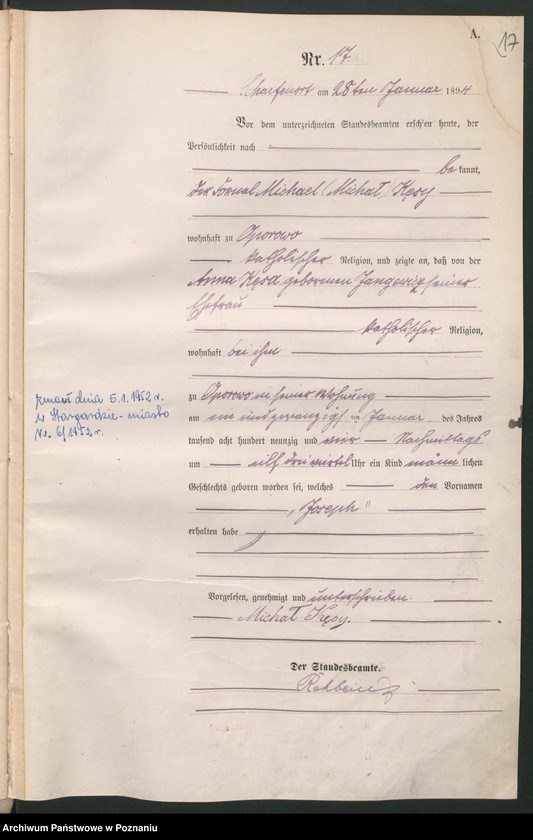 A.
17
Nr. 17
Scharfenort am 28ten Januar 1894
Vor dem unterzeichneten Standesbeamten erschien heute, der
Persönlichkeit nach
be kannt,
der Michael (Michał) Kęsy
wohnhaft zu Oporowo
katholischer Religion, und zeigte an, daß von der
Anna Kęsa geborenen seiner
Ehefrau
katholischer Religion,
wohnhaft bei ihm
zu Oporowo in seiner Wohnung
am ein und zwanzigsten Januar des Jahres
tausend acht hundert neunzig und vier Nachmittags
um elf drei viertel Uhr ein Kind männ lichen
Geschlechts geboren worden sei, welches den Vornamen
„Joseph"
erhalten habe
Vorgelesen, genehmigt und unterschrieben.
Michał Kęsy.
Der Standesbeamte.
zmarł dnia 5.1.1952 r.
w Stargardzie-miasto
Nr. 6/1952 r.
Archiwum Państwowe w Poznaniu